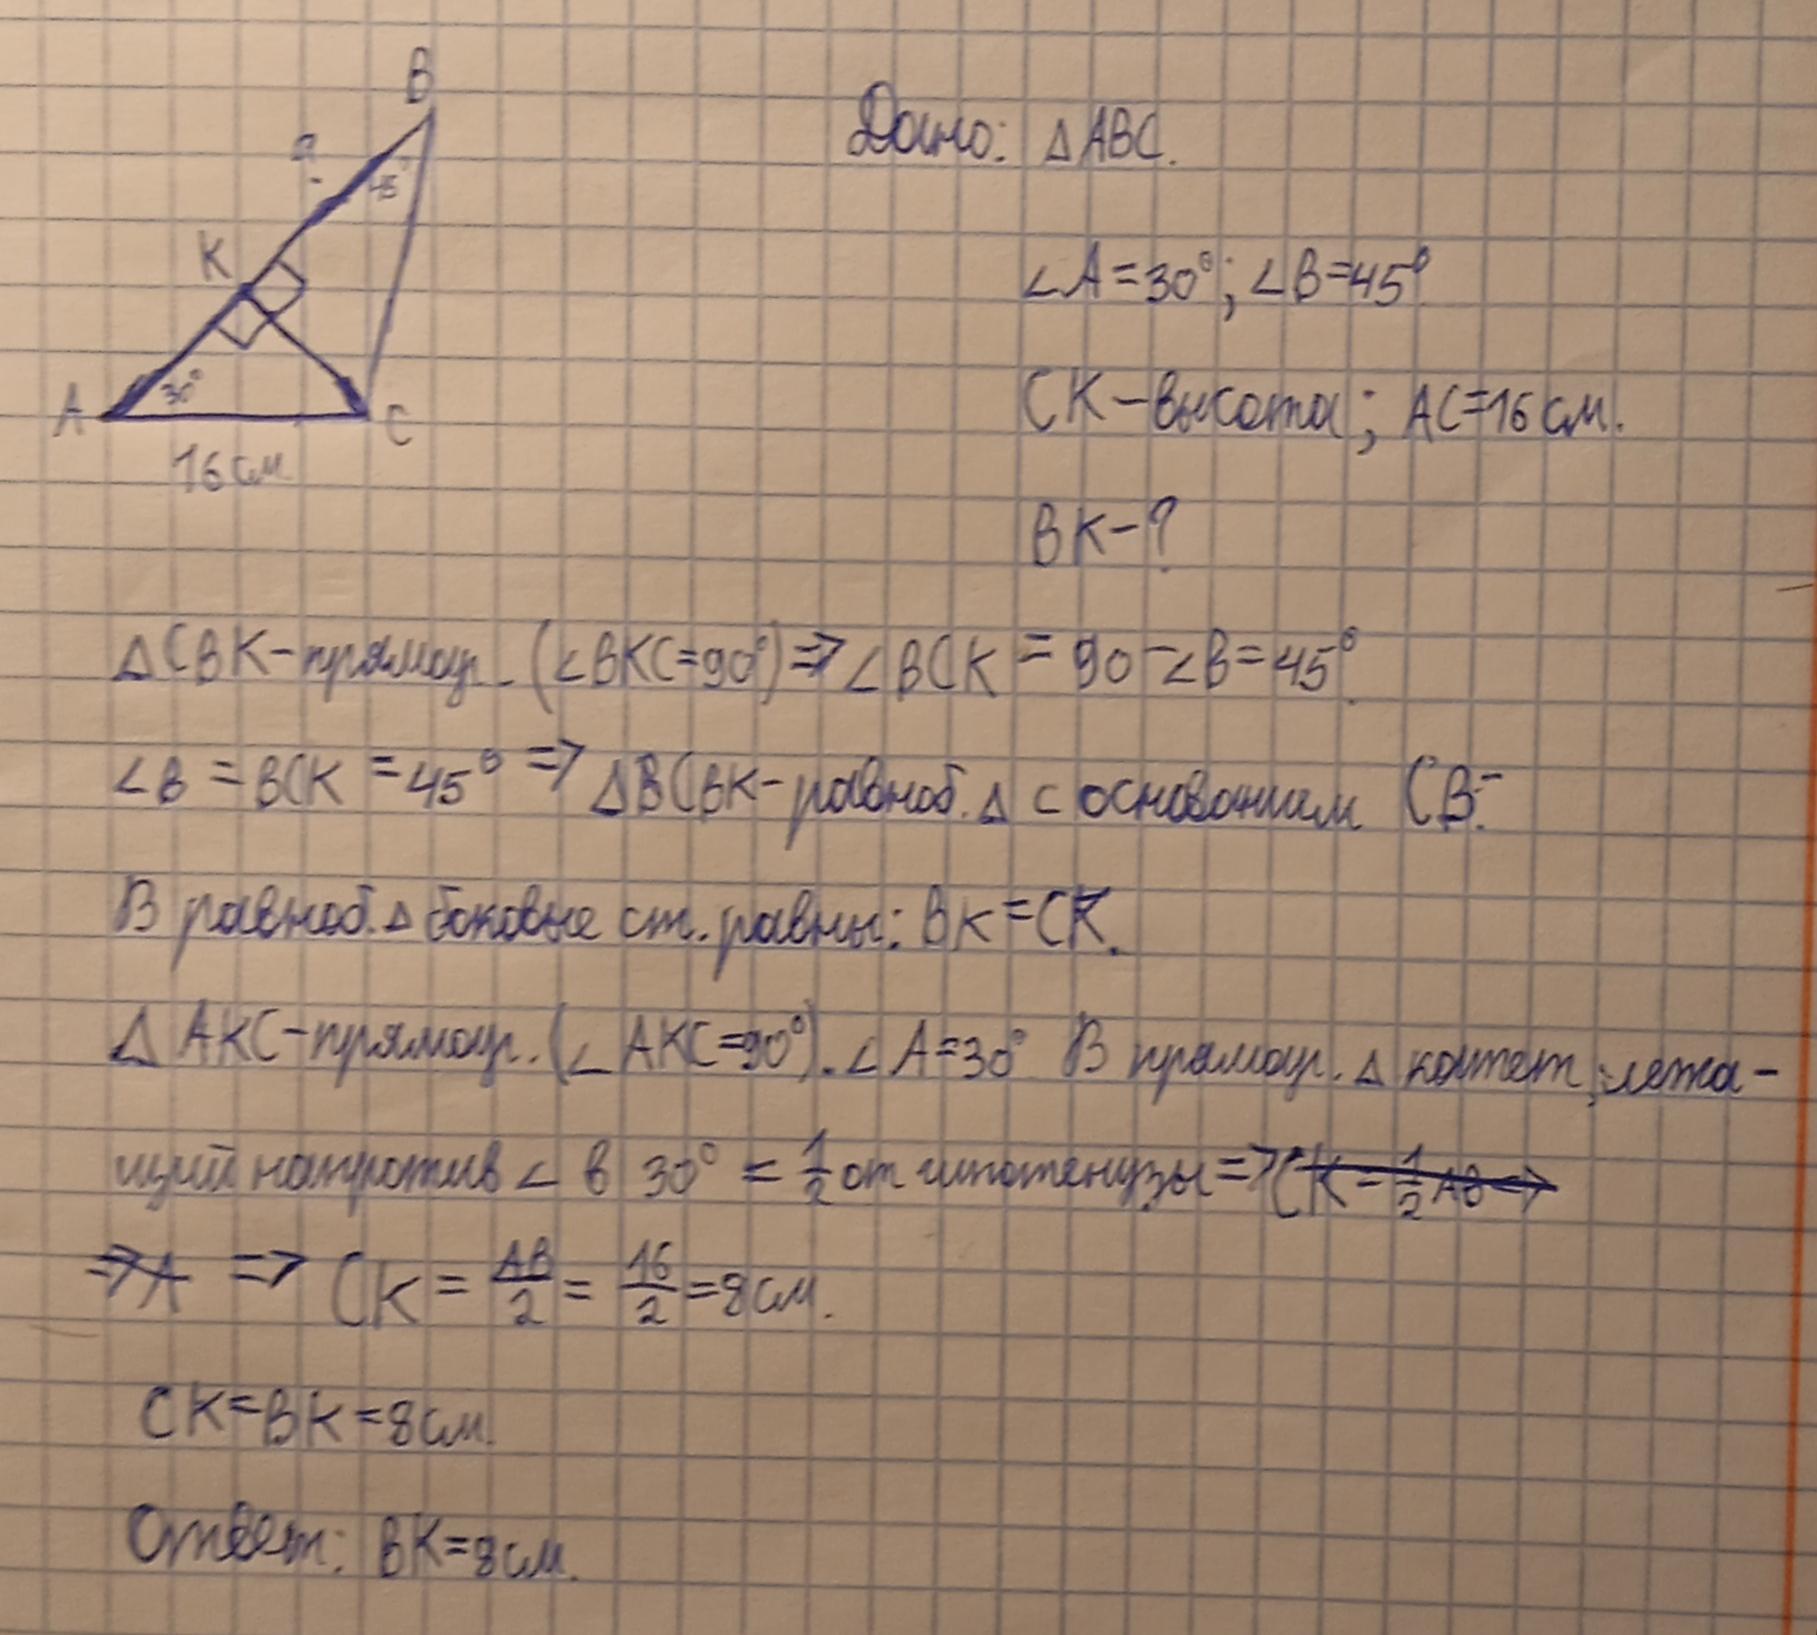 B
?
45°
K
A
30°
C
16 см
Дано: △ABC.
∠A=30°; ∠B=45°
CK-высота; AC=16 см.
BK-?
△CBK-прямоуг. (∠BKC=90°)=>∠BCK = 90-∠B=45°.
∠B = BCK = 45° => △BCBK-равноб. △ с основанием CB.-
В равноб. △ боковые ст. равны: BK=CK.
△ AKC-прямоуг. (∠AKC=90°). ∠A=30° В прямоуг. △ катет, лежа-
щий напротив ∠ в 30° = 1/2 от гипотенузы => CK = 1/2 AB =>
=>A => CK = AB/2 = 16/2 = 8 см.
CK=BK=8 см.
Ответ: BK=8 см.